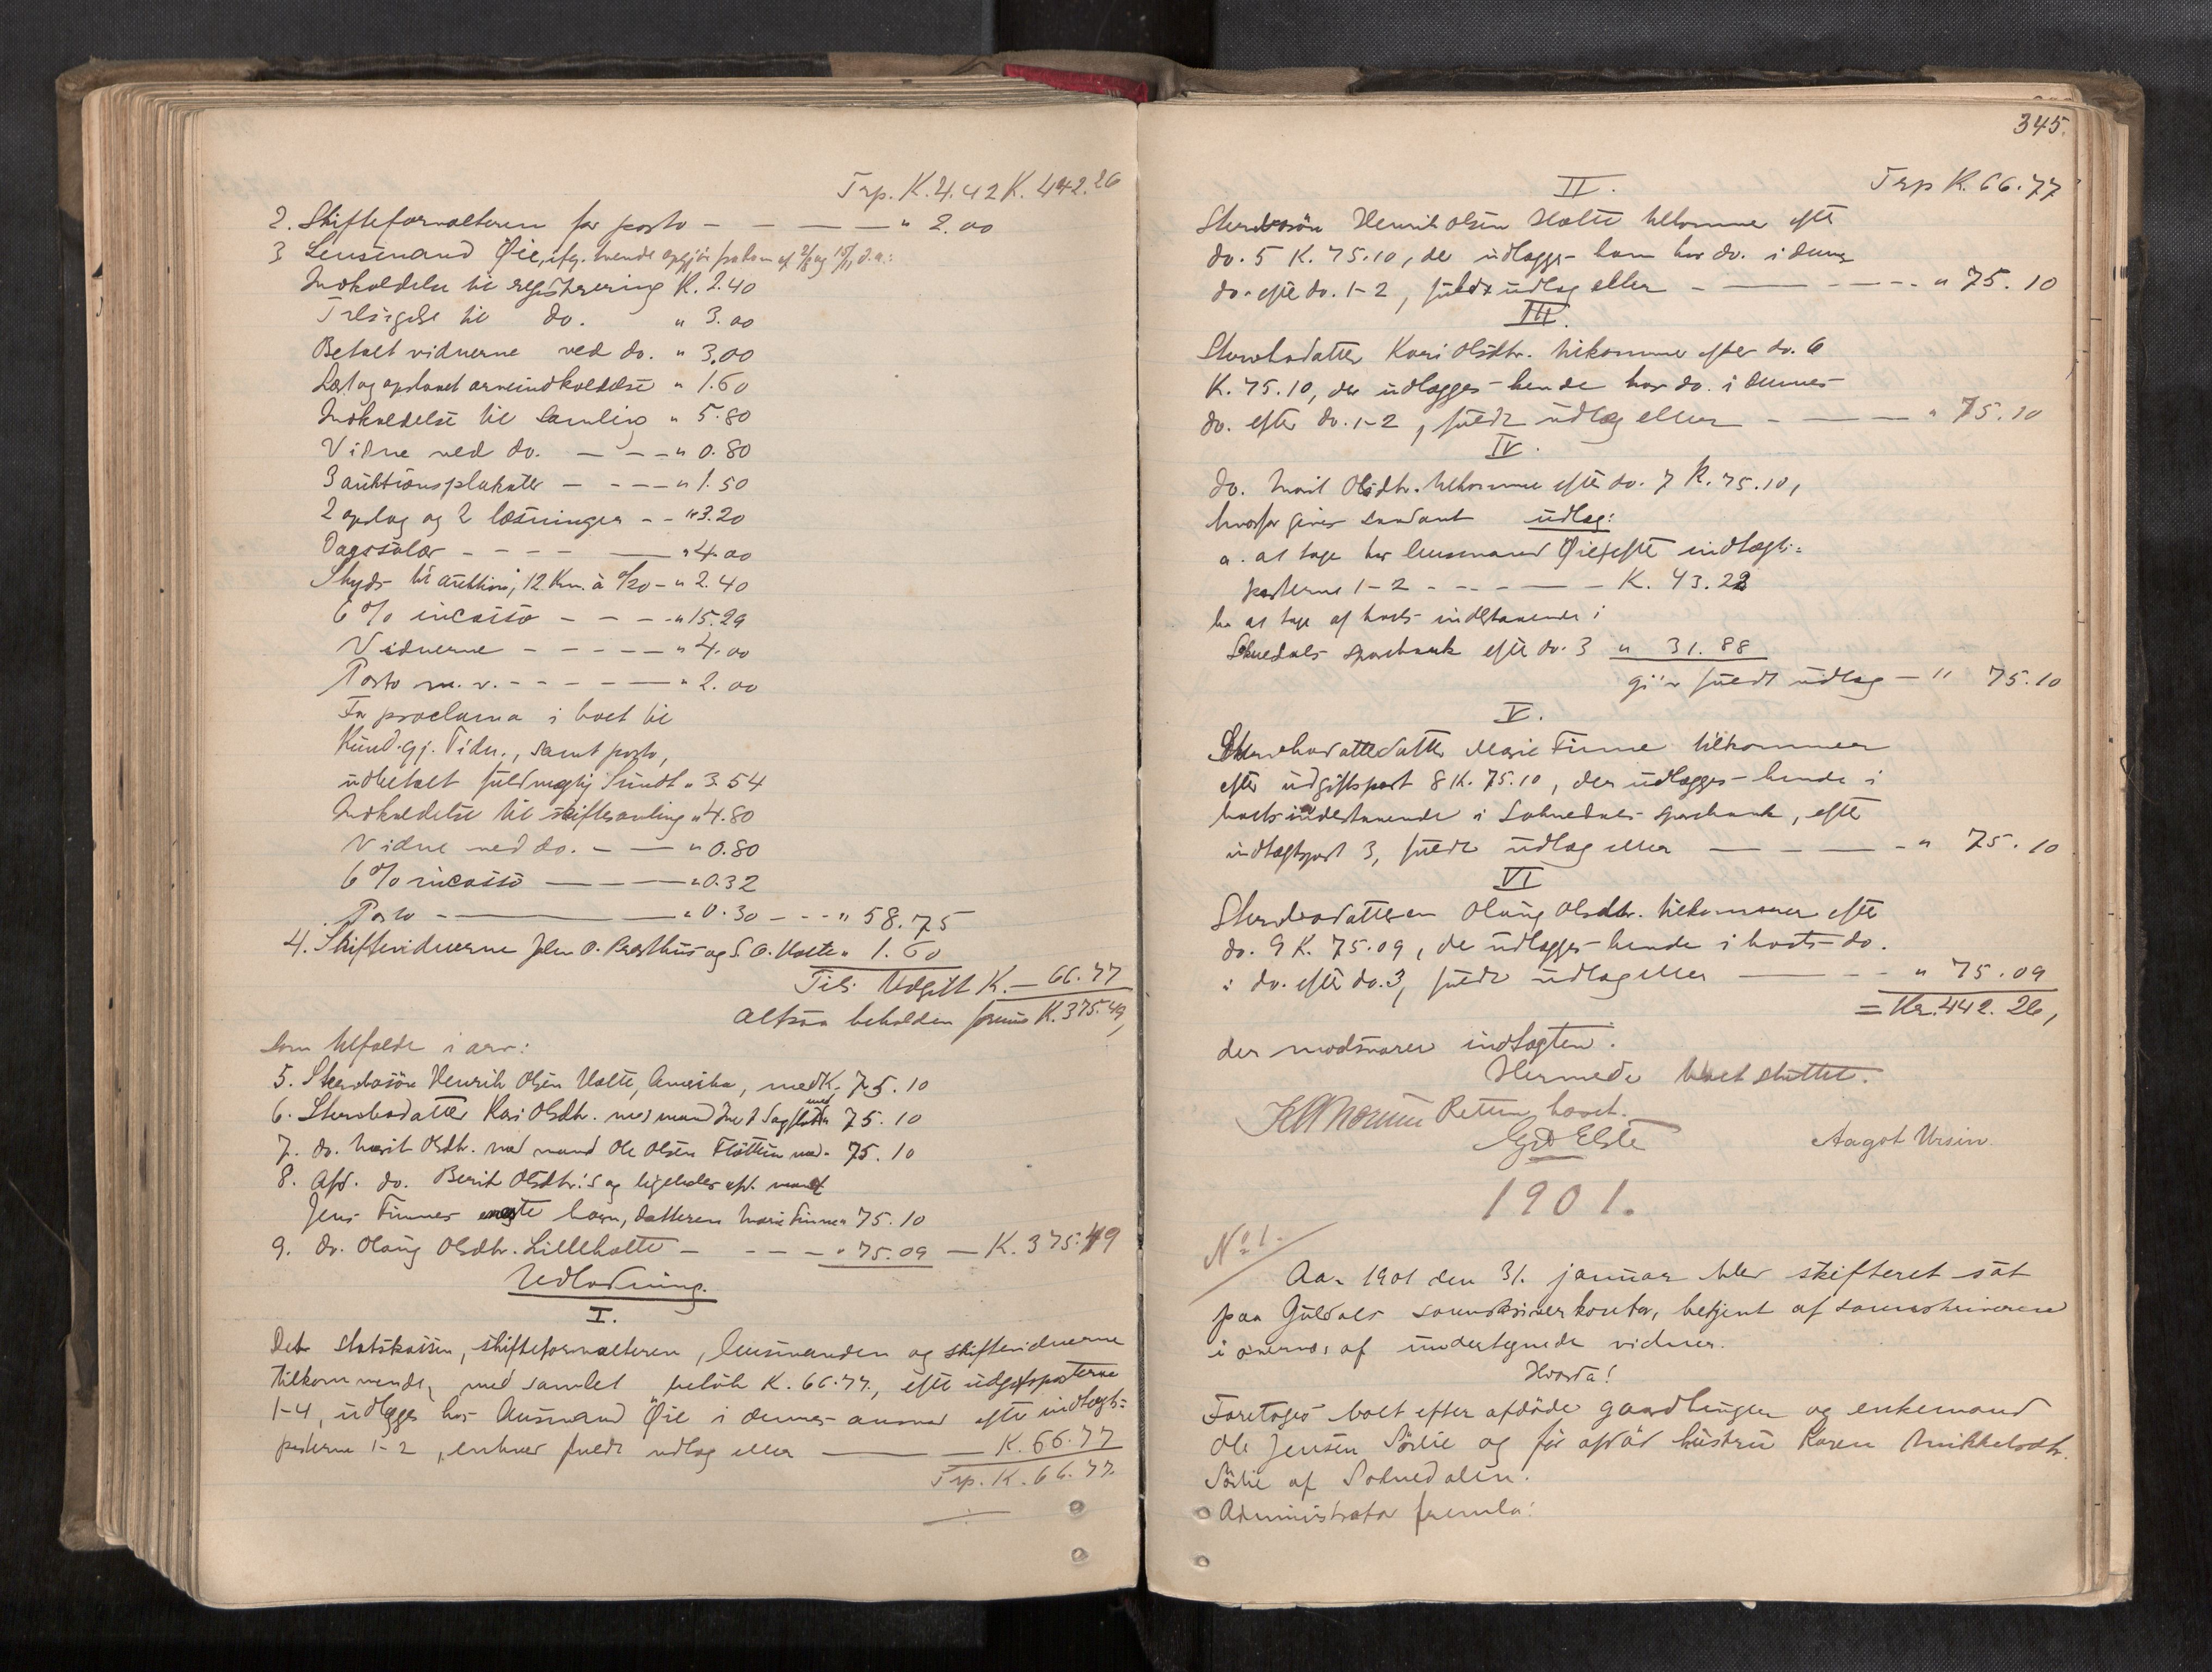 Trp. K. 4.42 K. 442.26
2. Skifteforvalteren for porto - - - - " 2.00
3 Lensmand Øie, ifg. tvende opgjör d.a.:
Indkaldelse til registrering K. 2.40
Tilsigelse til do. " 3.00
Betalt vidnerne ved do. " 3.00
Læst og opslaaet arveindkaldelse " 1.60
Indkaldelse til samling " 5.80
Vidne ved do. - - - " 0.80
3 auktionsplakater - - - - " 1.50
2 opslag og 2 læsninger - - " 3.20
Dagssalær - - - - - " 4.00
Skyds til auktion, 12 Km. à 0/20 - " 2.40
6 % incasso - - - - " 15.29
Vidnerne - - - - - " 4.00
Porto m. v. - - - - - " 2.00
For proclama i boet til
Kund.gj. Tidn., samt porto,
udbetalt fuldmægtig Sundt " 3.54
Indkaldelse til skiftesamling " 4.80
Vidne ved do. - - " 0.80
6 % incasso - - - " 0.32
Porto - - - " 0.30 - - - " 58.75
4. Skiftevidnerne John O. Presthus og S. O. Holte " 1.60
Tils. Udgift K. - 66.77
Altsaa beholden formue K. 375.49,
som tilfalde i arv:
5. Sterbosön Henrik Olsen Holte, Amerika, med K. 75.10
6. Sterbodatter Kari Olsdtr. med mand med " 75.10
7. do. Marit Olsdtr. med mand Ole Olsen Flötten med " 75.10
8. Afd. do. Berit Olsdtr.'s og ligeledes afd. mand
Jens Finnes eneste barn, datteren Marie Finne " 75.10
9. do. Olaug Olsdtr. Lilleholte - - - - " 75.09 - K. 375.49
Udlodning.
I.
Det statskassen, skifteforvalteren, lensmanden og skiftevidnerne
tilkommende, med samlet belöb K. 66.77, efter udgiftsposterne
1-4, udlægges hos lensmand Øie i dennes ansvar efter indtægts-
posterne 1-2, enhver fuldt udlæg eller - - K. 66.77
Trp. K. 66.77.
345.
II. Trp K. 66.77
Sterbosön Henrik Olsen Holte tilkommer efter
do. 5 K. 75.10, der udlægges ham hos do. i dennes
do. efter do. 1-2, fuldt udlæg eller - - - - " 75.10
III.
Sterbodatter Kari Olsdtr. tilkommer efter do. 6
K. 75.10, der udlægges hende hos do. i dennes
do. efter do. 1-2, fuldt udlæg eller - - - " 75.10
IV.
do. Marit Olsdtr. tilkommer efter do. 7 K. 75.10,
hvorfor gives saadant udlæg:
a. at tage hos lensmand Øie efter indtægts-
posterne 1-2 - - - - - K. 43.22
b. at tage af boets indestaaende i
Soknedals sparebank efter do. 3 " 31.88
gi'r fuldt udlæg - " 75.10
V.
Sterbodatterdatter Marie Finne tilkommer
efter udgiftspost 8 K. 75.10, der udlægges hende i
boets indestaaende i Soknedals sparebank, efter
indtægtspost 3, fuldt udlæg eller - - - - " 75.10
VI
Sterbodatteren Olaug Olsdtr. tilkommer efter
do. 9 K. 75.09, der udlægges hende i boets do.
i do. efter do. 3, fuldt udlæg eller - - - " 75.09
= Kr. 442.26,
der modsvarer indtægten.
Hermed boet sluttet.
Retten hævet.
Aagot Ursin.
1901.
No 1.
Aar 1901 den 31. januar blev skifteret sat
paa Guldals sorenskriverkontor, betjent af sorenskriveren
i overvær af undertegnede vidner.
Hvorda!
Foretoges boet efter afdöde gaardbruger og enkemand
Ole Jensen Sörlie og för afdöd hustru Karen Mikkelsdtr.
Sörlie af Soknedalen.
Administrator fremla: